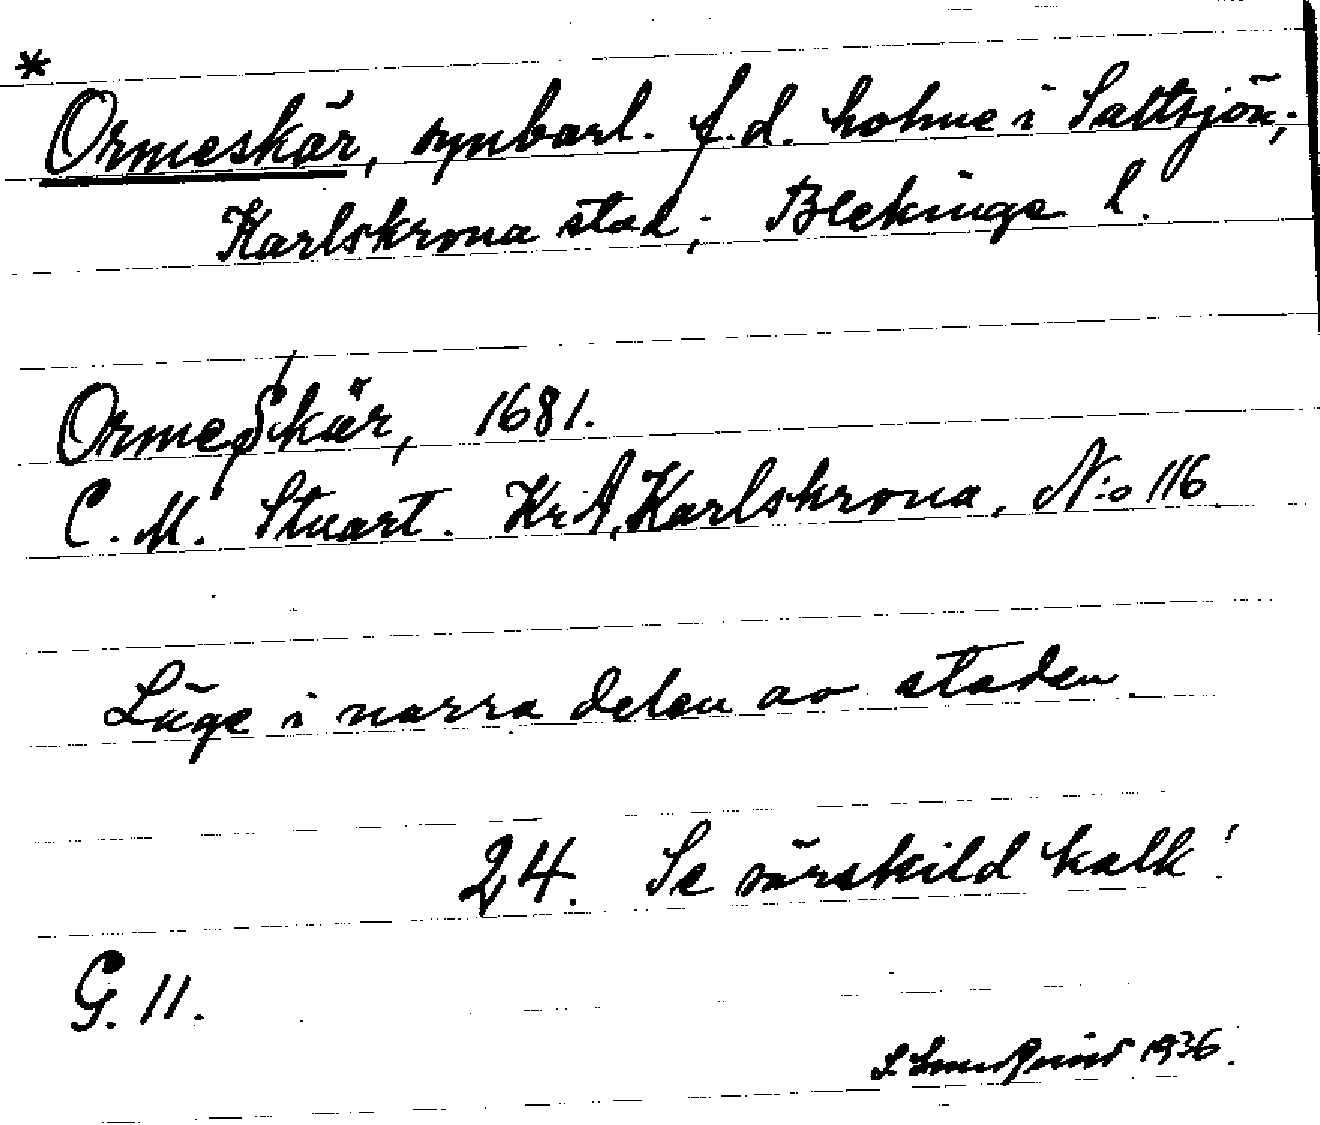 *
Ormeskär, synbarl. f.d. holme i Saltsjön;
Karlskrona stad; Blekinge l.
Ormeskär, 1681.
C. M. Stuart. KrA, Karlskrona, N:o 116.
Läge i norra delen av staden.
24. Se särskild kalk!
G. 11.
1936.